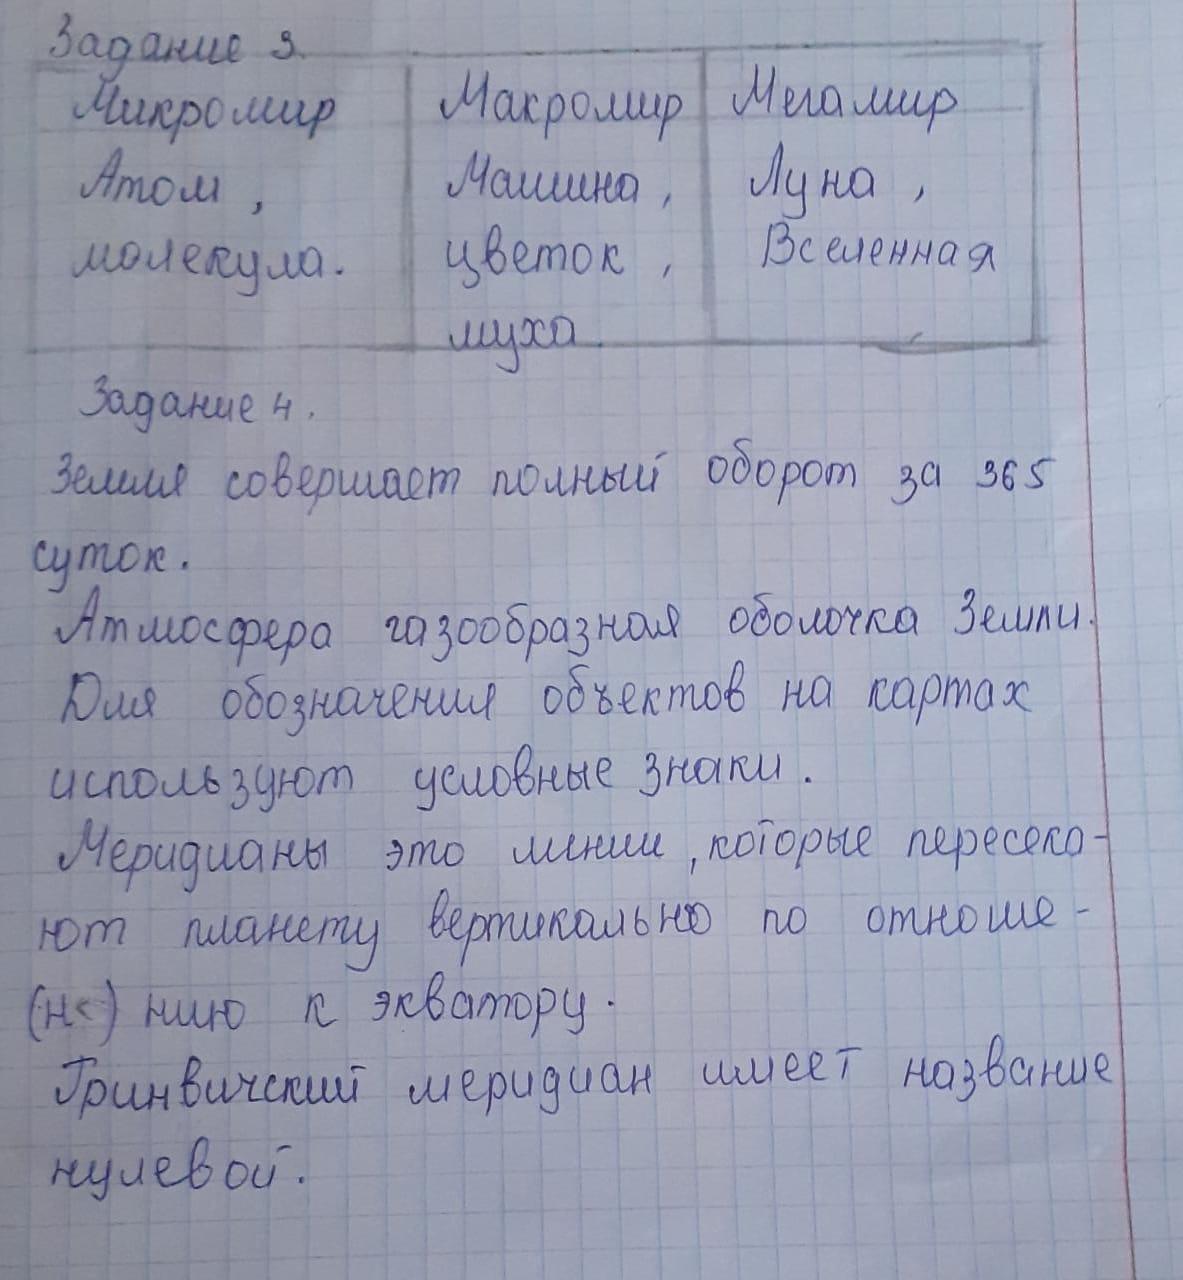 Задание 3.
Микромир Макромир Мегамир
Атом, Машина, Луна,
молекула. цветок, Вселенная
муха
Задание 4.
Земля совершает полный оборот за 365
суток.
Атмосфера газообразная оболочка Земли.
Для обозначения объектов на картах
используют условные знаки.
Меридианы это линии, которые пересека-
ют планету вертикально по отноше-
(н<) нию к экватору.
Гринвичский меридиан имеет название
нулевой.